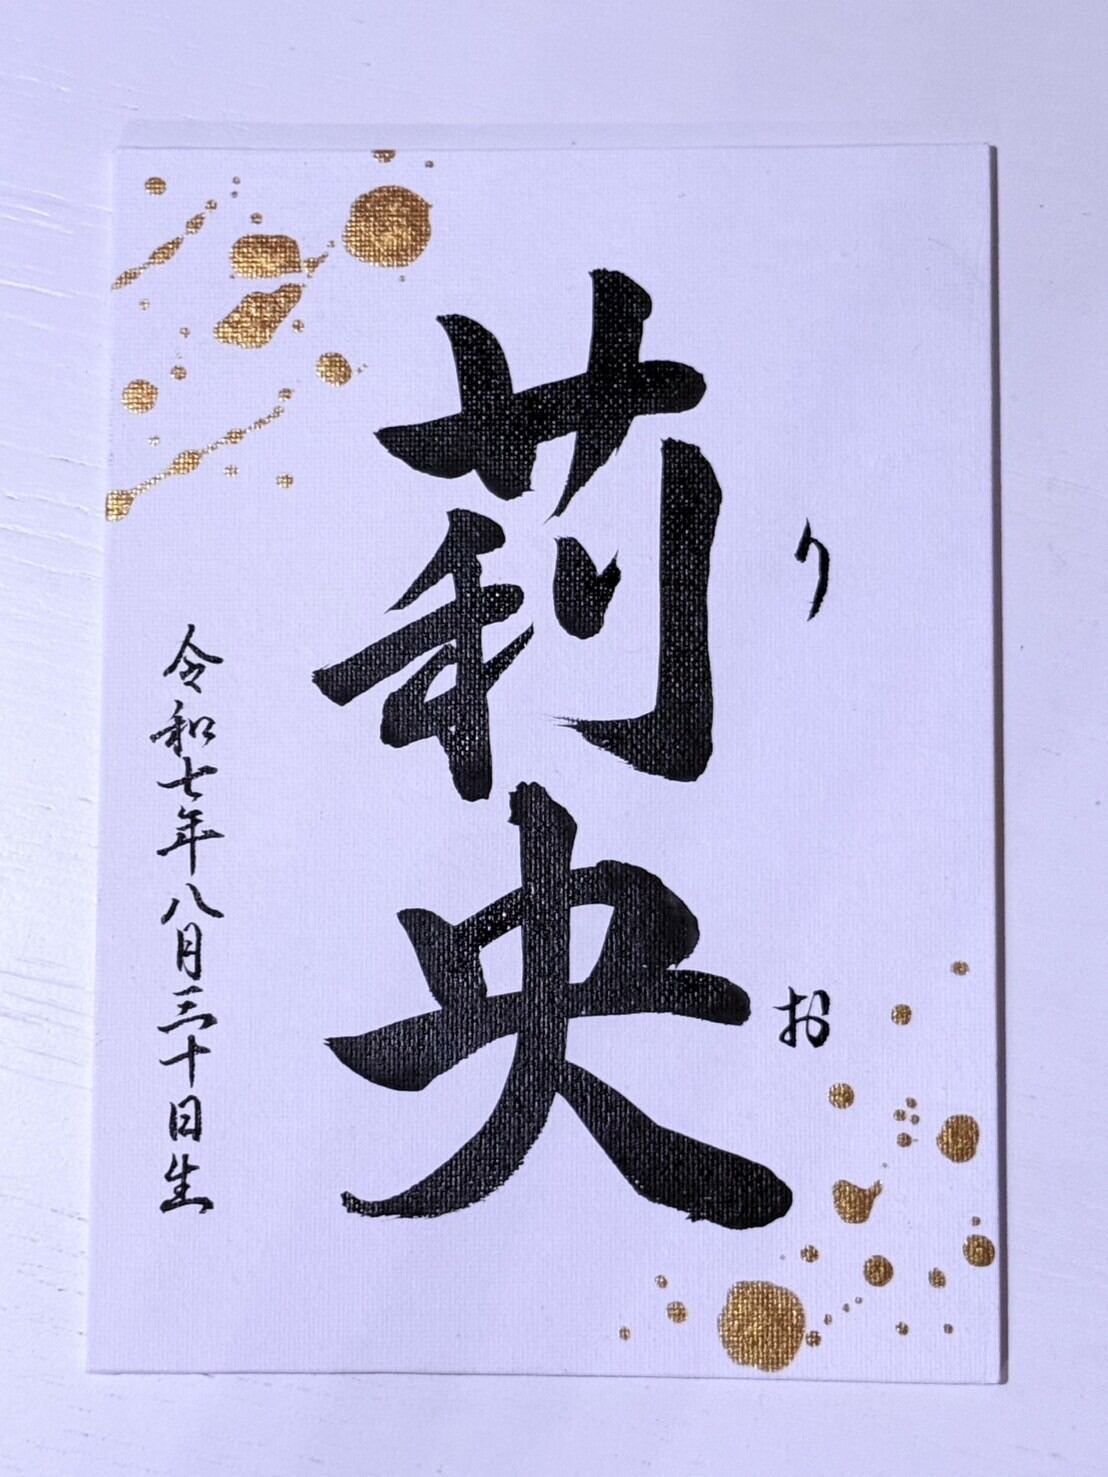 りお
莉央
令和七年八月三十日生